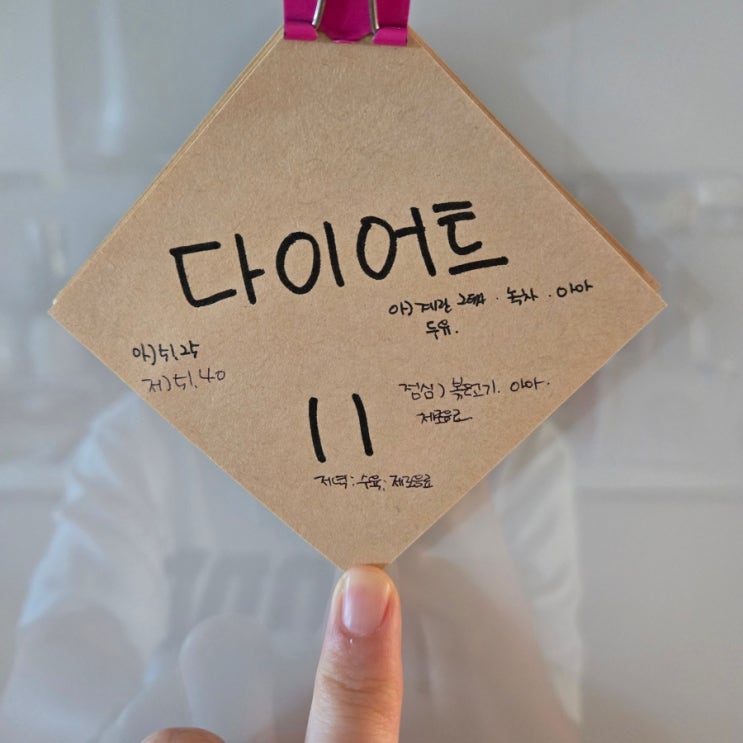 다이어트
아) 계란 2개 · 녹차 · 아아
두유.
아) 51.25
저) 51.40
점심) 불고기. 아아.
제로음료
11
저녁: 수육, 제로음료